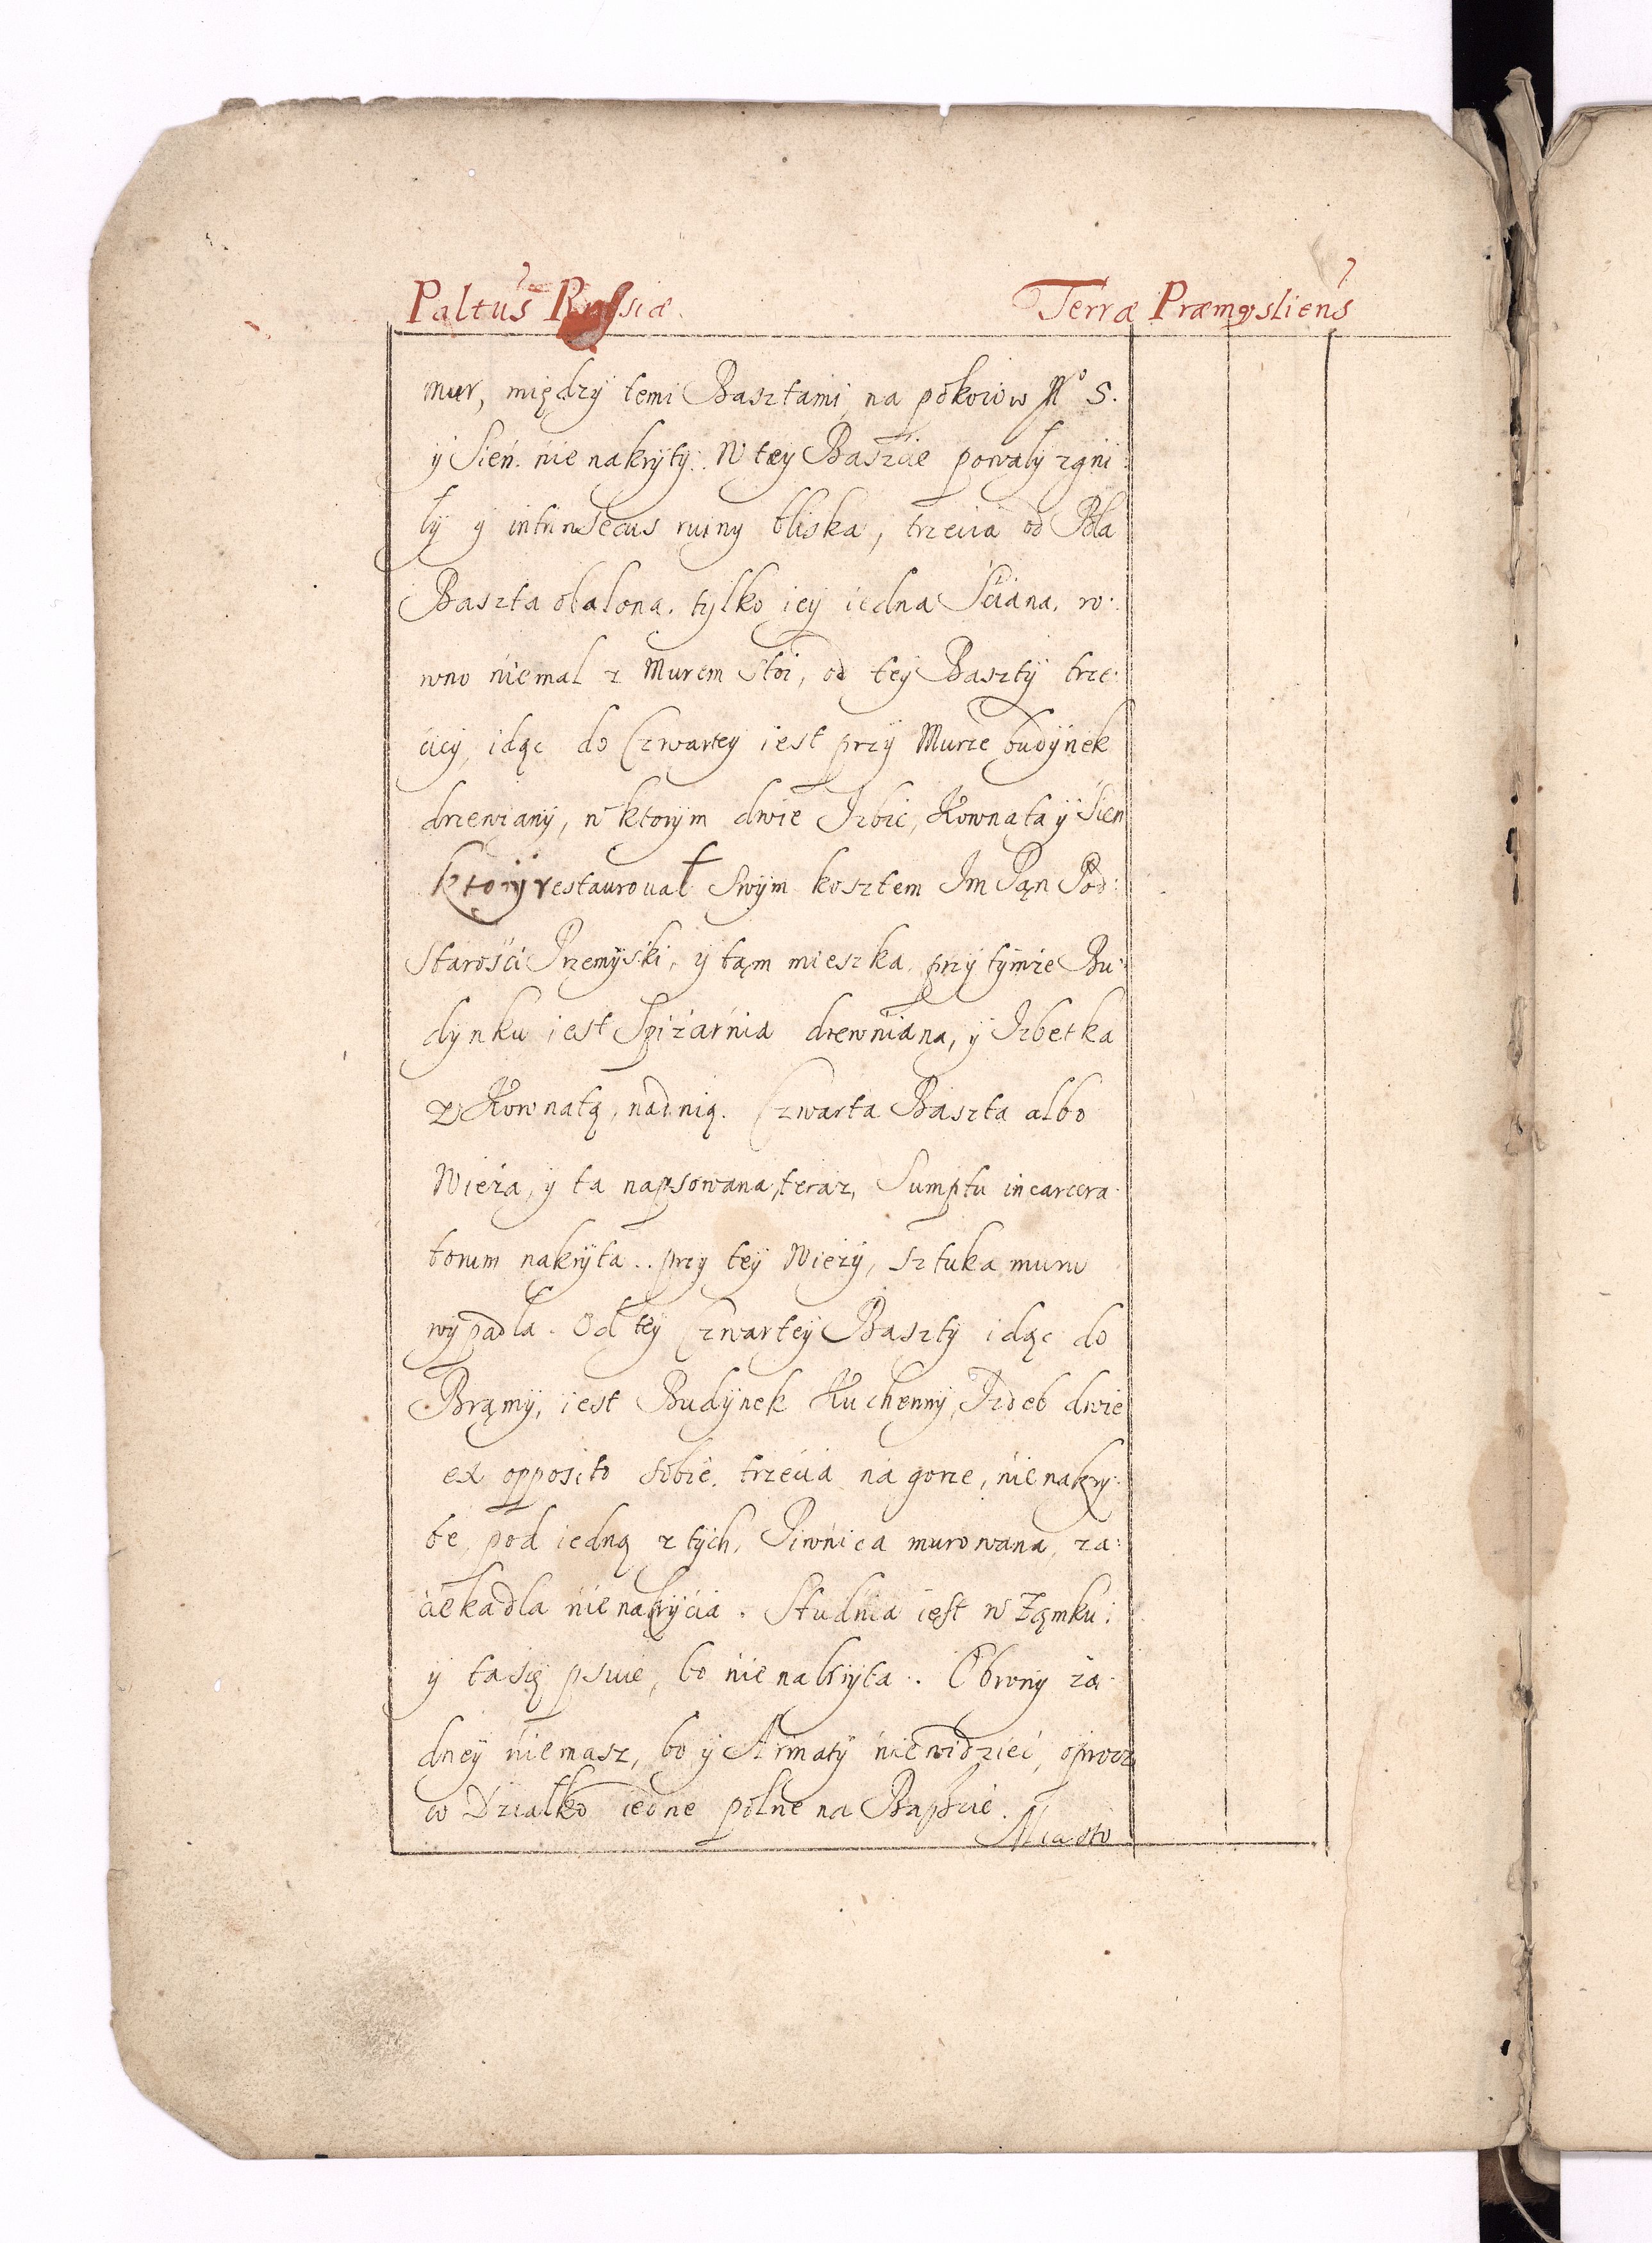 Paltus Russiæ. Terræ Præmysliens
mur, między temi Basztami, na pokoiow N° 5.
ÿ Sień. nie nakrÿtÿ. W tey Baszcie powalÿ zgni:
łÿ ÿ intrinsecus ruiny bliska, trzecia od Pola
Baszta obalona. tÿlko ieÿ iedna Sciana. ro:
wno niemal z Murem stoi, od teÿ Basztÿ trze:
cieÿ, idąc do Czwarteÿ iest przÿ Murze budÿnek
drzewianÿ, w ktorym dwie Izbie, Kownata ÿ Sień
ktorÿ restaurował Swÿm kosztem Im Pąn Pod:
Starosci Przemÿski, ÿ tąm mieszka. przÿ tÿmże Bu:
dÿnku iest Spiżarnia drewniana, ÿ Izbetka
z Kownatą, nad nią. Czwarta Baszta albo
Wieża, ÿ ta napsowana, teraz, Sumptu incarcera:
torum nakrÿta.. przy teÿ Wieżÿ, sztuka muru
wÿpadla. Od teÿ Czwarteÿ Basztÿ idąc do
Brąmÿ, iest Budÿnek Kuchennÿ, Izdeb dwie
ex opposito sobie. trzecia na gorze, nie nakrÿ:
te, pod iedną z tÿch, Piwnica murowana, za:
ciekadla nie nakrÿcia. Studnia iest w Ząmku:
ÿ ta się psuie, bo nie nakrÿta. Obronÿ ża:
dneÿ niemasz, bo ÿ Armatÿ nie widzieć, oprocz
w Działko iedne polne na Baszcie.
Miasto